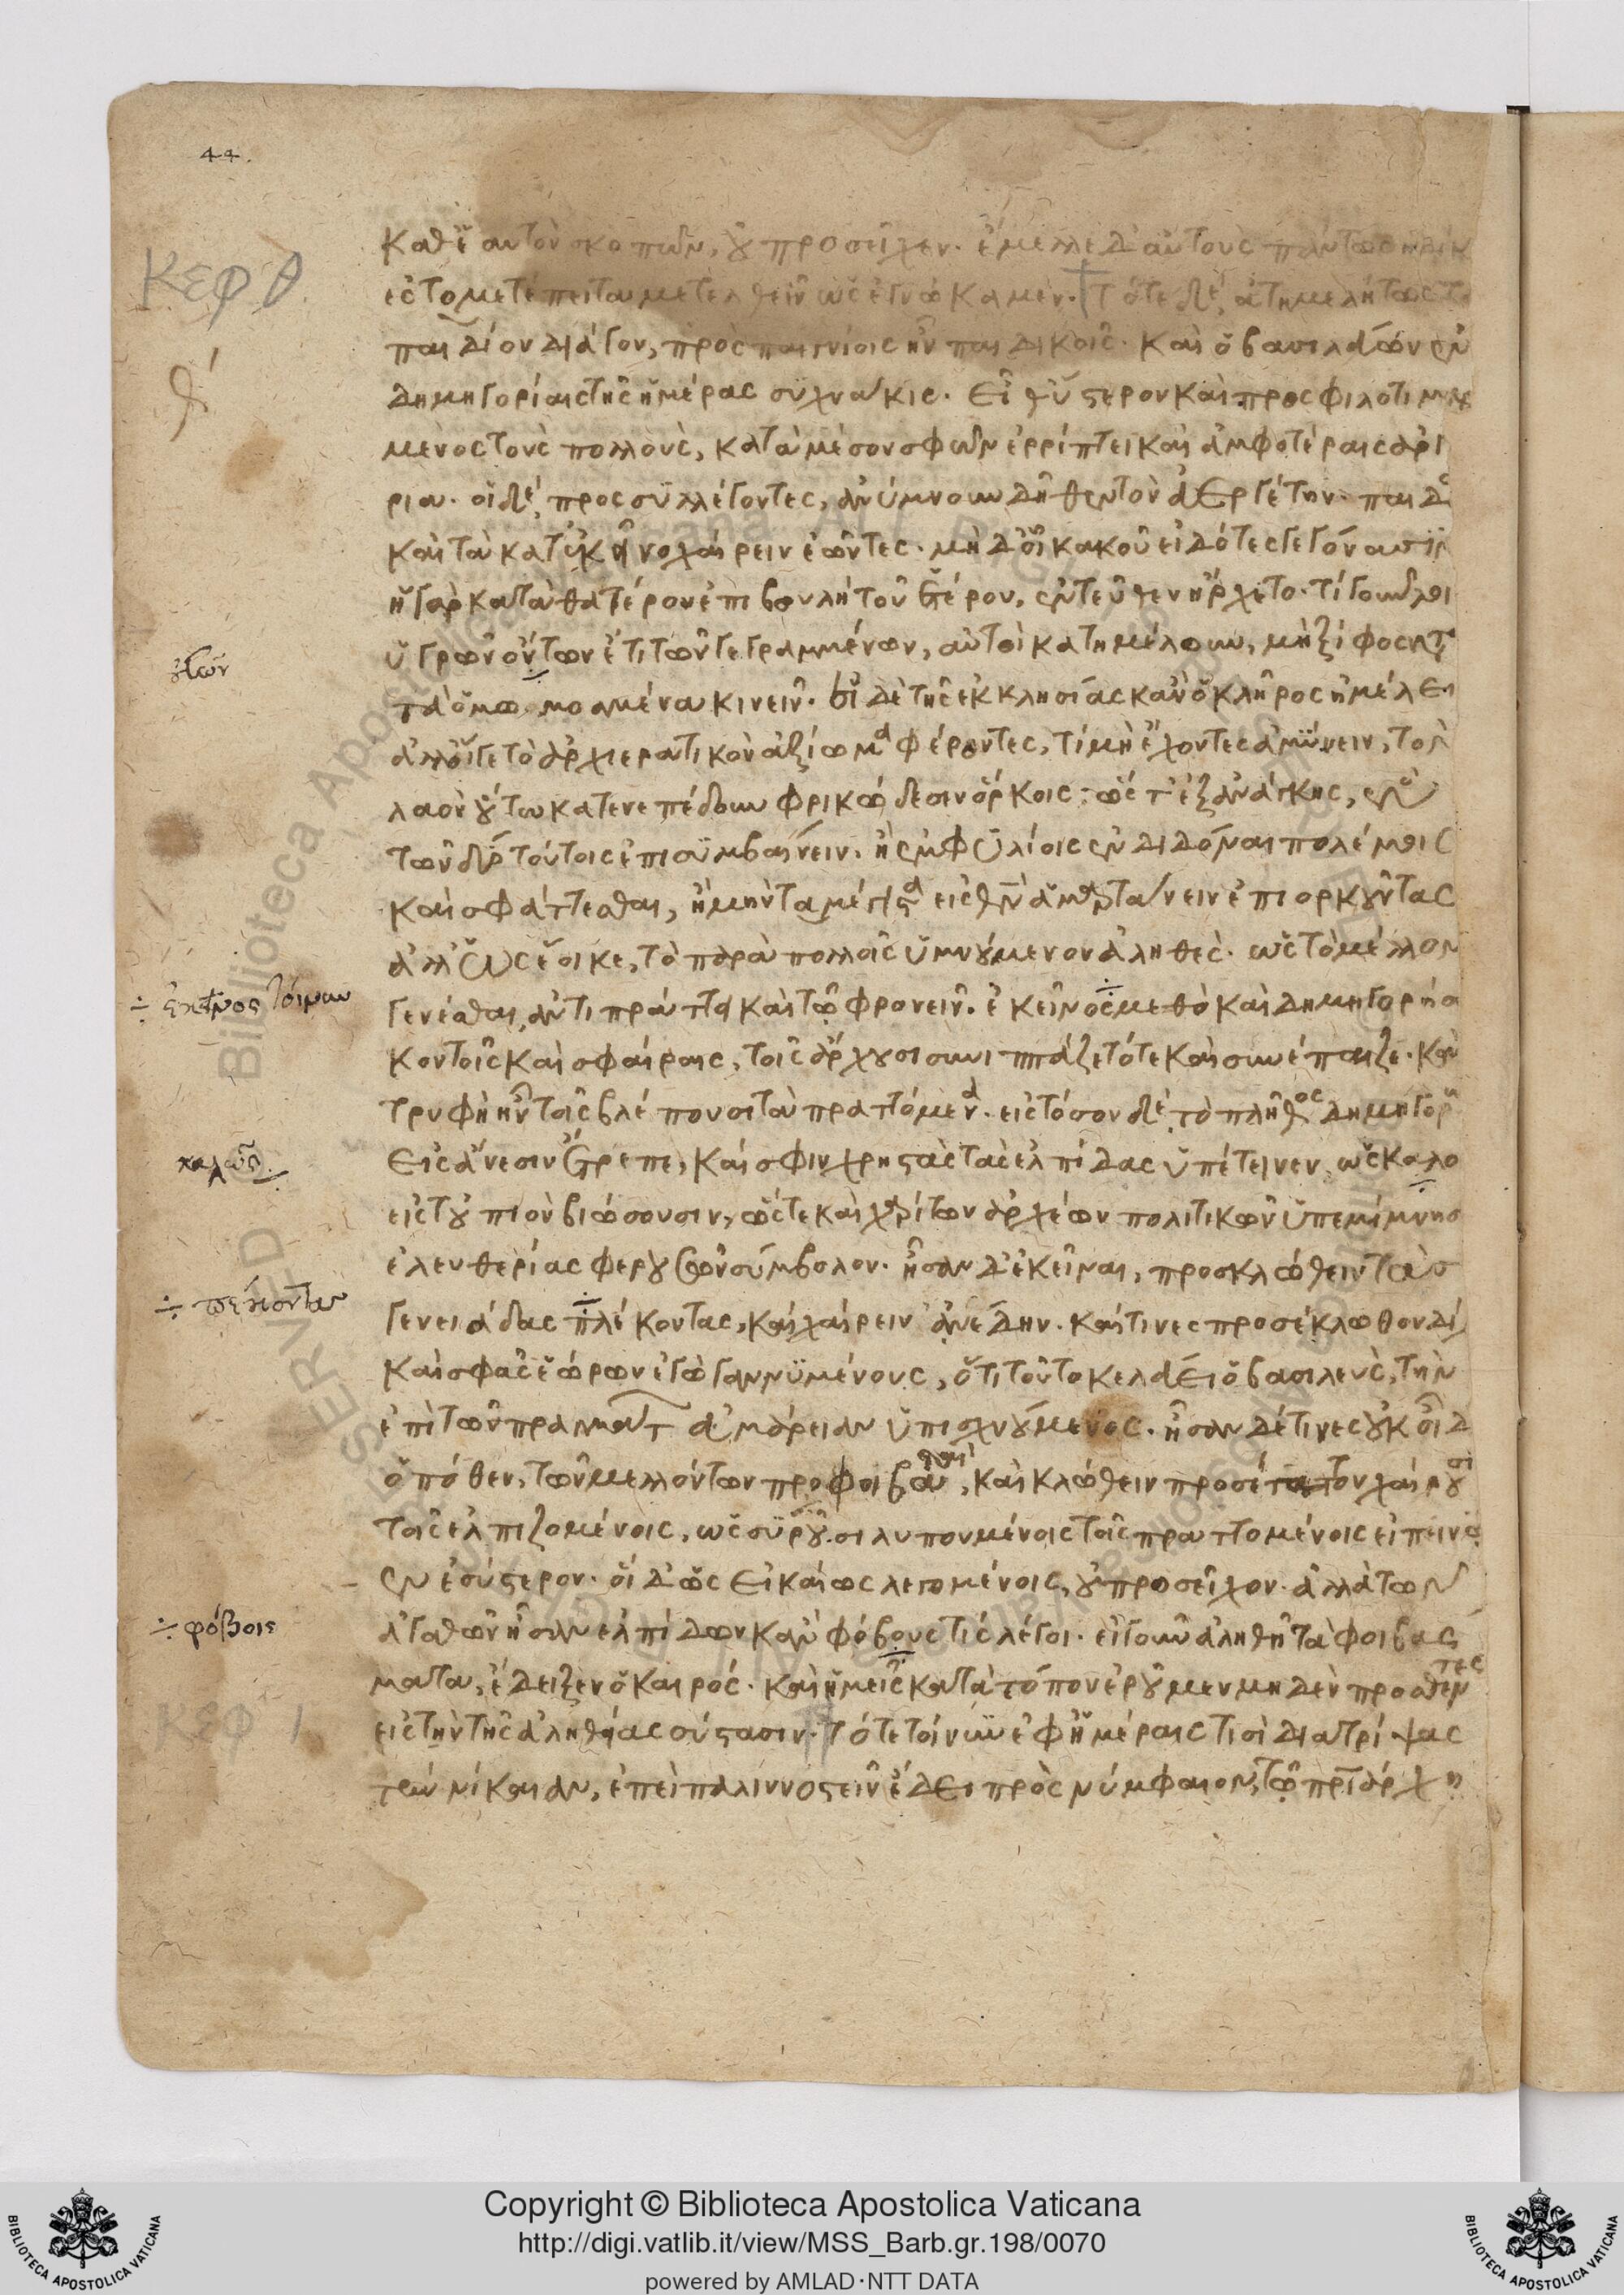 44.
ΚΕΦ θ.
θ΄
καθ' ἑαυτὸν σκοπῶν, οὐ προσεῖχεν. ἔμελλε δ' αὐτοὺς πάντως
ἐς τὸ μετέπειτα μετελθεῖν ὡς ἐγνώκαμεν. Τότε δὲ, ἀτημελήτως τὸ
παιδίον διάγον, πρὸς παιγνίοις ἦν παιδικοῖς. καὶ ὁ βασιλεύων ἐν
δημηγορίαις τῆς ἡμέρας συχνάκις. εἶθ' ὕστερον καὶ προσφιλοτιμού
μενος τοὺς πολλοὺς, κατὰ μέσον σφῶν ἐρρίπτει καὶ ἀμφοτέραις ἀργύ
ρια. οἱ δὲ, προσσυλλέγοντες, ἀνύμνουν δῆθεν τὸν εὐεργέτην. παιδὸς
καὶ τὰ κατ' ἐκεῖνο χαίρειν ἐῶντες. μηδ' οἷ κακοῦ εἰδότες γεγόνασιν
ἡ γὰρ κατὰ θατέρου ἐπιβουλὴ τοῦ ἑτέρου, ἐντεῦθεν ἤρχετο. τί γοῦν
ὑγρῶν ὄντων ἔτι τῶν γεγραμμένων, αὐτοὶ κατημέλουν, μὴ ξίφος
τὰ ὀμωμοσμένα κινεῖν. οἱ δὲ τῆς ἐκκλησίας κἂν ὁ κλῆρος ἠμέλει
ἀλλ' οἵγε τὸ ἀρχιερατικὸν ἀξίωμα φέροντες, τί μὴ ἔχοντες ἀμύνειν, τὸν
λαὸν οὕτω κατενεπέδουν φρικώδεσιν ὅρκοις· ὥστ' ἐξ ἀνάγκης, ἓν
τῶν δυεῖν τούτοις ἐπισυμβαίνειν. ἢ ἐμφυλίοις ἐνδιδόναι πολέμοις
καὶ σφάττεσθαι, ἢ μὴν τὰ μέγιστα εἰς θεὸν ἁμαρτάνειν ἐπιορκοῦντας
ἀλλ' ὡς ἔοικε, τὸ παρὰ πολλοῖς ὑμνούμενον ἀληθὲς. ὡς τὸ μέλλον
γενέσθαι, ἀντιπράττει καὶ τῷ φρονεῖν. ἐκεῖνος μεθὸ καὶ δημηγορήσει
κοντοῖς καὶ σφαίραις, τοῖς ἄρχουσι συνιππάζετό τε καὶ συνέπαιζε. καὶ
τρυφὴ ἦν τοῖς βλέπουσι τὰ πραττόμενα. εἰς τόσον δὲ τὸ πλῆθος δημηγορῶν
εἰς ἄνεσιν ἔτρεπε, καὶ σφιν χρηστὰς τὰς ἐλπίδας ὑπέτεινεν, ὡς καλῶς
εἰς τοὐπιὸν βιώσουσιν, ὥστε καὶ χαρίτων ἀρχαίων πολιτικῶν ὑπεμίμνησ
ἐλευθερίας φερουσῶν σύμβολον. ἦσαν δ' ἐκεῖναι, προσκλώθειν τὰς
γενειάδας πλέκοντας, καὶ χαίρειν ἀνέδην. καί τινες προσέκλωθον δὴ
καὶ σφᾶς ἑώρων ἐγὼ γαννυμένους, ὅτι τοῦτο κελεύει ὁ βασιλεὺς, τὴν
ἐπὶ τῶν πραγμάτων εὐμάρειαν ὑπισχνούμενος. ἦσαν δέ τινες οὐκ οἶδ
ὁπόθεν, τῶν μελλόντων προφοιβασταί, καὶ κλώθειν προσέταττον χαίρουσι
τοῖς ἐλπιζομένοις, ὡς συρροῦσι λυπουμένοις τοῖς πραττομένοις εἰπεῖν
ἐν ἐσύστερον. οἱ δ' ὡς εἰκαίως λεγομένοις, οὐ προσεῖχον. ἀλλὰ τῶν
ἀγαθῶν ἦσαν ἐλπίδων κἂν φόβους τὶς λέγοι. εἰ γοῦν ἀληθῆ τὰ φοιβάσ
ματα, ἔδειξεν ὁ καιρός. καὶ ἡμεῖς κατὰ τόπον ἐροῦμεν μηδὲν προσθέντες
εἰς τὴν τῆς ἀληθείας σύστασιν. Τότε τοίνυν ἐφ' ἡμέραις τισὶ διατρίψας
τὴν νίκαιαν, ἐπεὶ παλιννοστεῖν ἔδει πρὸς νύμφαιον, τῷ πατριάρχῃ
÷ ἐκεῖνος
καλῶς
÷ πλέκοντας
÷ φόβοις
ΚΕΦ Ι
Copyright © Biblioteca Apostolica Vaticana
http://digi.vatlib.it/view/MSS_Barb.gr.198/0070
powered by AMLAD·NTT DATA
BIBLIOTECA APOSTOLICA VATICANA
BIBLIOTECA APOSTOLICA VATICANA